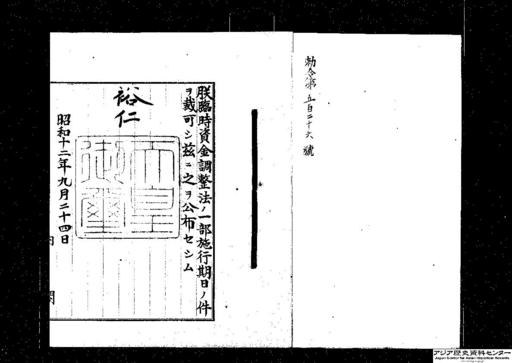 勅令第五百二十六號
朕臨時資金調整法ノ一部施行期日ノ件
ヲ裁可シ茲ニ之ヲ公布セシム
裕仁
天皇
御璽
昭和十二年九月二十四日
内閣
アジア歴史資料センター
Japan Center for Asian Historical Records